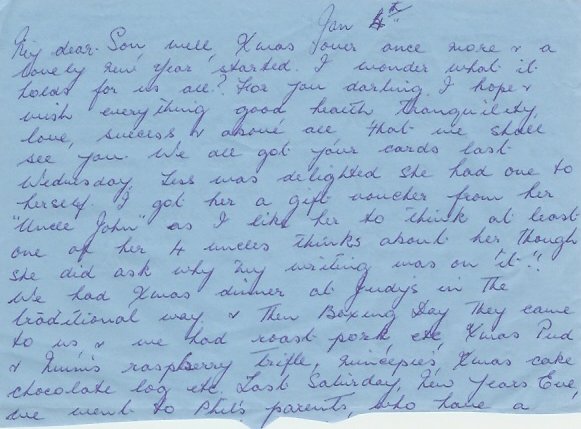 Jan 4th
My dear Son, well, Xmas over once more & a
lovely new year started. I wonder what it
holds for us all? For you darling I hope &
wish everything good health, tranquility,
love, success & above all that we shall
see you. We all got your cards last
Wednesday, Tess was delighted she had one to
herself. I got her a gift voucher from her
"Uncle John" as I like her to think at least
one of her 4 uncles thinks about her, though
she did ask why my writing was on it"!!
We had Xmas dinner at Judys in the
traditional way & then Boxing Day they came
to us & we had roast pork, etc, Xmas Pud
& Mum's raspberry trifle, mincepies, Xmas cake
chocolate log etc. Last Saturday, New Years Eve,
we went to Phil's parents, who have a